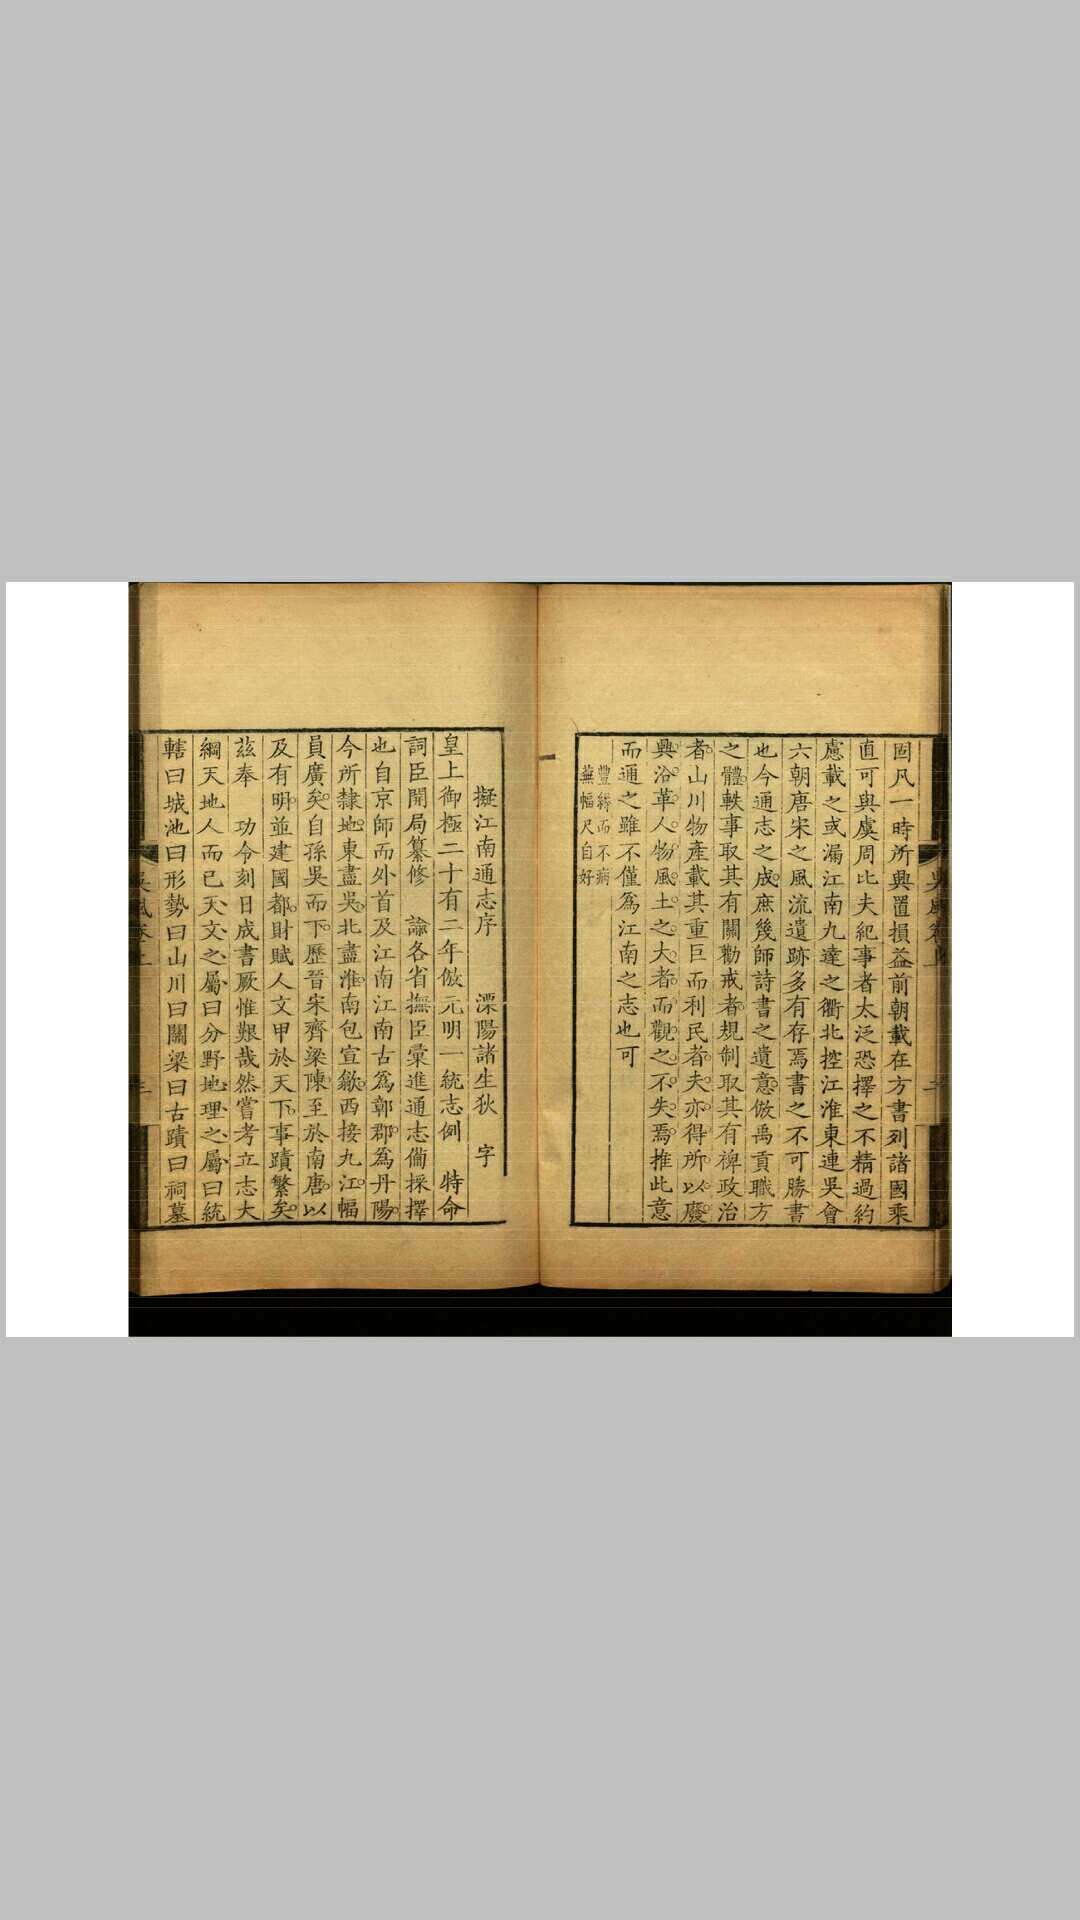 固凡一時所興置損益前朝載在方書列諸國乘
直可與虞周比夫紀事者太泛恐擇之不精過約
慮載之或漏江南九達之衢北控江淮東連吳會
六朝唐宋之風流遺跡多有存焉書之不可勝書
也今通志之成庶幾師詩書之遺意倣禹貢職方
之體軼事取其有關勸戒者規制取其有裨政治
者山川物產載其重巨而利民者夫亦得所以廢
興沿革人物風土之大者而觀之不失焉推此意
而通之雖不僅爲江南之志也可
豐縟而不病
蕪幅尺自好
擬江南通志序 溧陽諸生狄 字
皇上御極二十有二年倣元明一統志例 特命
詞臣開局纂修 諭各省撫臣彙進通志備採擇
也自京師而外首及江南江南古爲鄣郡爲丹陽
今所隸地東盡吳北盡淮南包宣歙西接九江幅
員廣矣自孫吳而下歷晉宋齊梁陳至於南唐以
及有明並建國都財賦人文甲於天下事蹟繁矣
茲奉 功令刻日成書厥惟艱哉然嘗考立志大
綱天地人而已天文之屬曰分野地理之屬曰統
轄曰城池曰形勢曰山川曰關梁曰古蹟曰祠墓